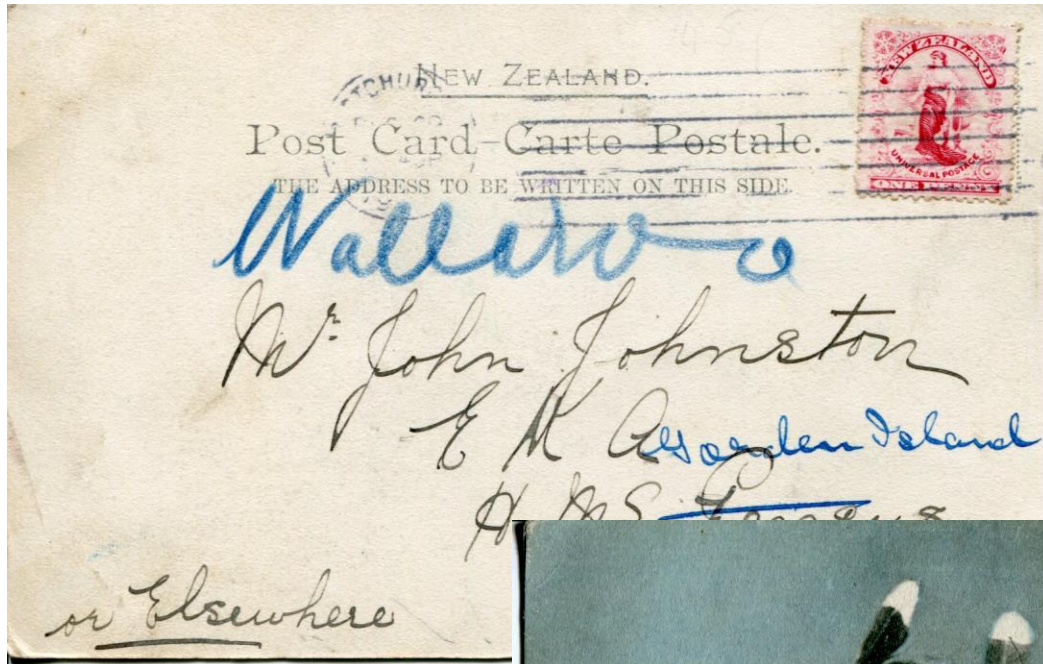 NEW ZEALAND.
Post Card - Carte Postale.
THE ADDRESS TO BE WRITTEN ON THIS SIDE.
NEW ZEALAND
UNIVERSAL POSTAGE
ONE PENNY
Mr. John Johnston
E R A
Garden Island
H M S
or Elsewhere